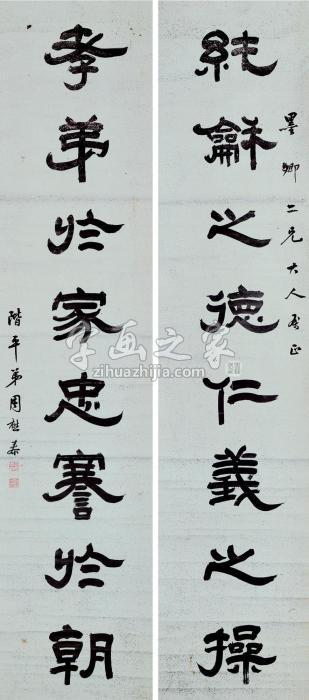 墨卿二兄大人雅正
純龢之德仁義之操
孝弟於家忠謇於朝
階平弟周
字画之家
zihuazhijia.com